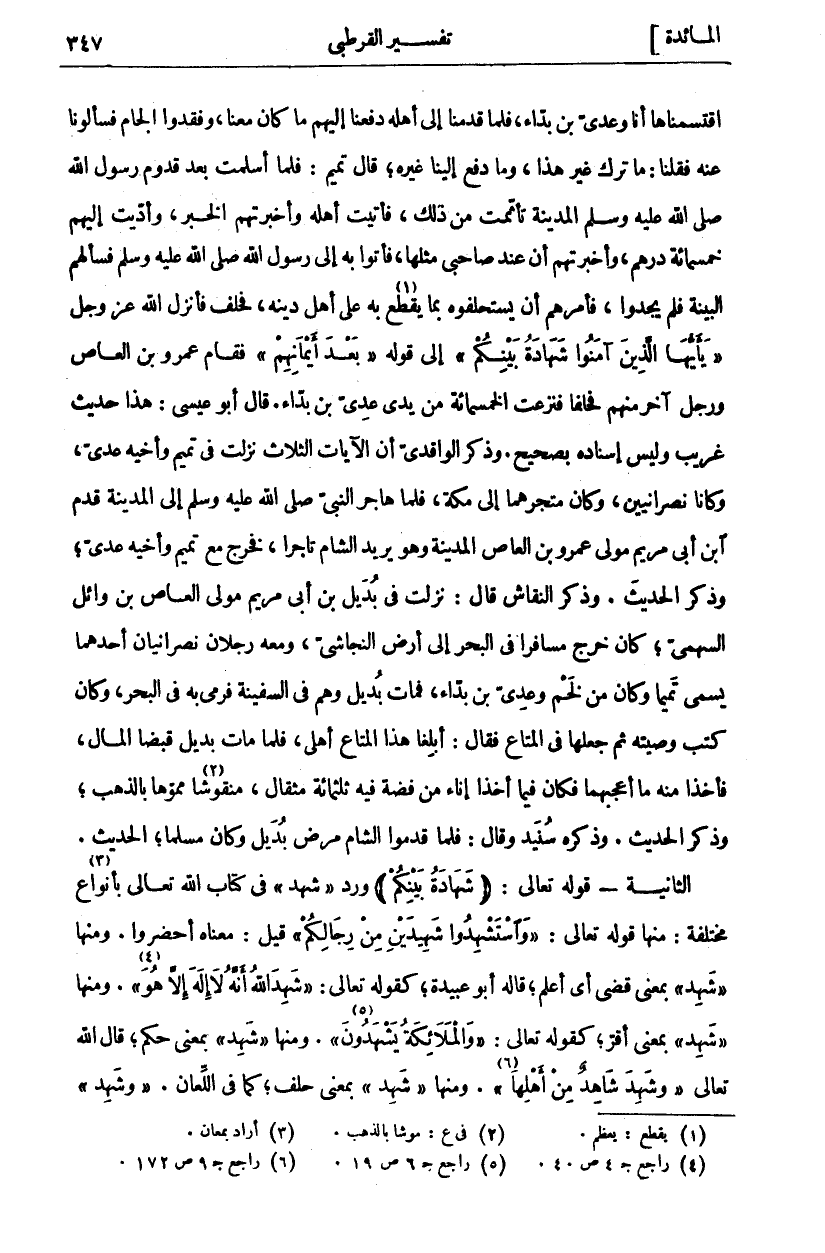 المائدة ] تفسير القرطبى ٣٤٧
اقتسمناها أنا وعدىّ بن بدّاء، فلما قدمنا إلى أهله دفعنا إليهم ما كان معنا، وفقدوا الجام فسألونا
عنه فقلنا: ما ترك غير هذا ، وما دفع إلينا غيره؛ قال تميم : فلما أسلمت بعد قدوم رسول الله
صلى الله عليه وسلم المدينة تأثّمت من ذلك ، فأتيت أهله وأخبرتهم الخبر ، وأدّيت إليهم
خمسمائة درهم، وأخبرتهم أن عند صاحبى مثلها، فأتوا به إلى رسول الله صلى الله عليه وسلم فسألهم
البينة فلم يجدوا ، فأمرهم أن يستحلفوه بما يقطع (١) به على أهل دينه، فحلف فأنزل الله عز وجل
« يَأَيُّهَا الَّذِينَ آمَنُوا شَهَادَةُ بَيْنِكُمْ » إلى قوله « بَعْدَ أَيْمَانِهِمْ » فقام عمرو بن العاص
ورجل آخر منهم فحلفا فنزعت الخمسمائة من يدى عدىّ بن بدّاء. قال أبو عيسى : هذا حديث
غريب وليس إسناده بصحيح. وذكر الواقدىّ أن الآيات الثلاث نزلت فى تميم وأخيه عدىّ،
وكانا نصرانيين، وكان متجرهما إلى مكة، فلما هاجر النبىّ صلى الله عليه وسلم إلى المدينة قدم
ٱبن أبى مريم مولى عمرو بن العاص المدينة وهو يريد الشام تاجرا ، فخرج مع تميم وأخيه عدىّ؛
وذكر الحديثَ . وذكر النقاش قال : نزلت فى بُدَيل بن أبى مريم مولى العاص بن وائل
السهمىّ ؛ كان خرج مسافرا فى البحر إلى أرض النجاشىّ ، ومعه رجلان نصرانيان أحدهما
يسمى تميما وكان من لَخْم وعدىّ بن بدّاء، فمات بُديل وهم فى السفينة فرمى به فى البحر، وكان
كتب وصيته ثم جعلها فى المتاع فقال : أبلغا هذا المتاع أهلى، فلما مات بديل قبضا المال،
فأخذا منه ما أعجبهما فكان فيما أخذا إناء من فضة فيه ثلثمائة مثقال ، منقوشا (٢) مموّها بالذهب ؛
وذكر الحديث . وذكره سُنَيد وقال : فلما قدموا الشام مرض بُدَيل وكان مسلما؛ الحديث .
الثانيـة — قوله تعالى : ﴿ شَهَادَةُ بَيْنِكُمْ ﴾ ورد « شهد » فى كتاب الله تعالى بأنواع (٣)
مختلفة : منها قوله تعالى : «وَٱسْتَشْهِدُوا شَهِيدَيْنِ مِنْ رِجَالِكُمْ» قيل : معناه أحضروا . ومنها
«شَهِد» بمعنى قضى أى أعلم؛ قاله أبو عبيدة؛ كقوله تعالى: «شَهِدَ اللهُ أَنَّهُ لَا إِلَهَ إِلَّا هُوَ» (٤) . ومنها
«شَهِد» بمعنى أقرّ؛ كقوله تعالى : «وَالْمَلَائِكَةُ يَشْهَدُونَ» (٥) . ومنها «شَهِد» بمعنى حكم؛ قال الله
تعالى « وشَهِدَ شَاهِدٌ مِنْ أَهْلِهَا » (٦) . ومنها « شَهِد » بمعنى حلف؛ كما فى اللّعان . « وشَهِد »
(١) يقطع : يعظم . (٢) فى ع : موشا بالذهب . (٣) أراد بمعان .
(٤) راجع جـ ٤ ص ٤٠ . (٥) راجع جـ ٦ ص ١٩ . (٦) راجع جـ ٩ ص ١٧٢ .